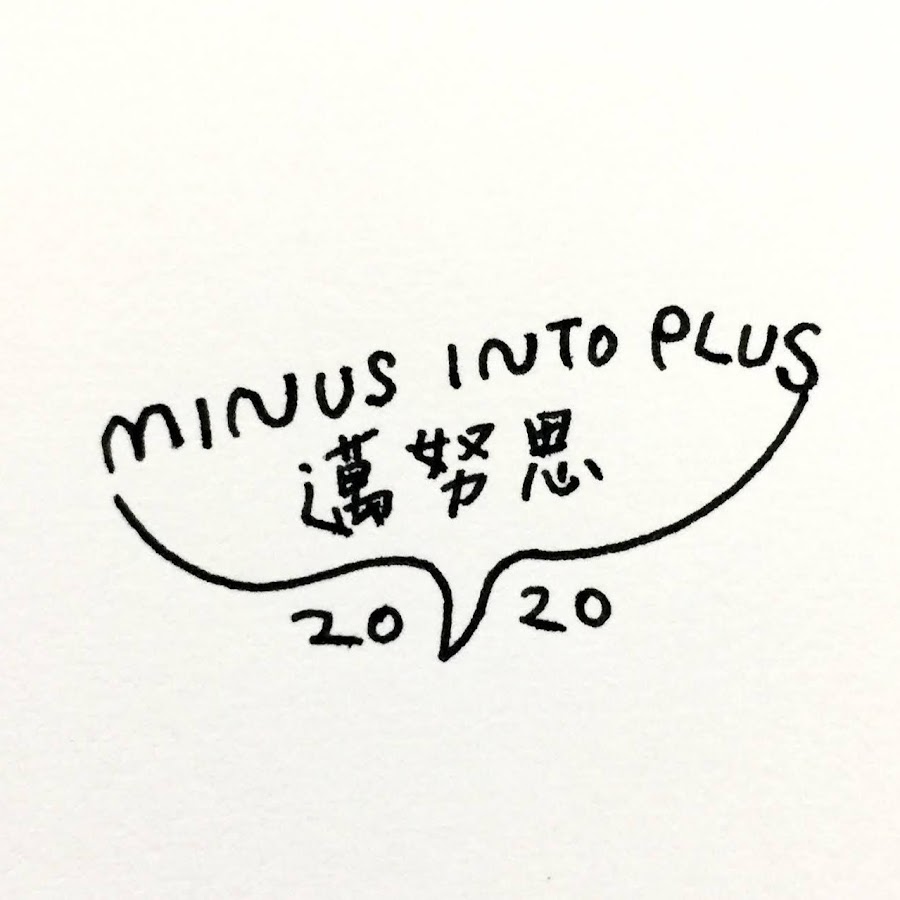 MINUS INTO PLUS
邁努思
20 20